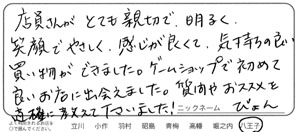 店員さんがとても親切で、明るく、
笑顔でやさしく、感じが良くて、気持ちの良い
買い物ができました。ゲームショップで初めて
良いお店に出会えました。質問やおススメを
適確に教えて下さいました!
ニックネーム ぴょん
立川 小作 羽村 昭島 青梅 高幡 堀之内 八王子